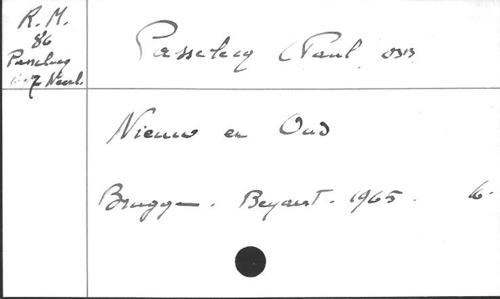 R. M.
86
Passelecq
Neerl.
Passelecq (Paul, OSB
Nieuw en Oud
Brugge. Beyaert. 1965. 16-